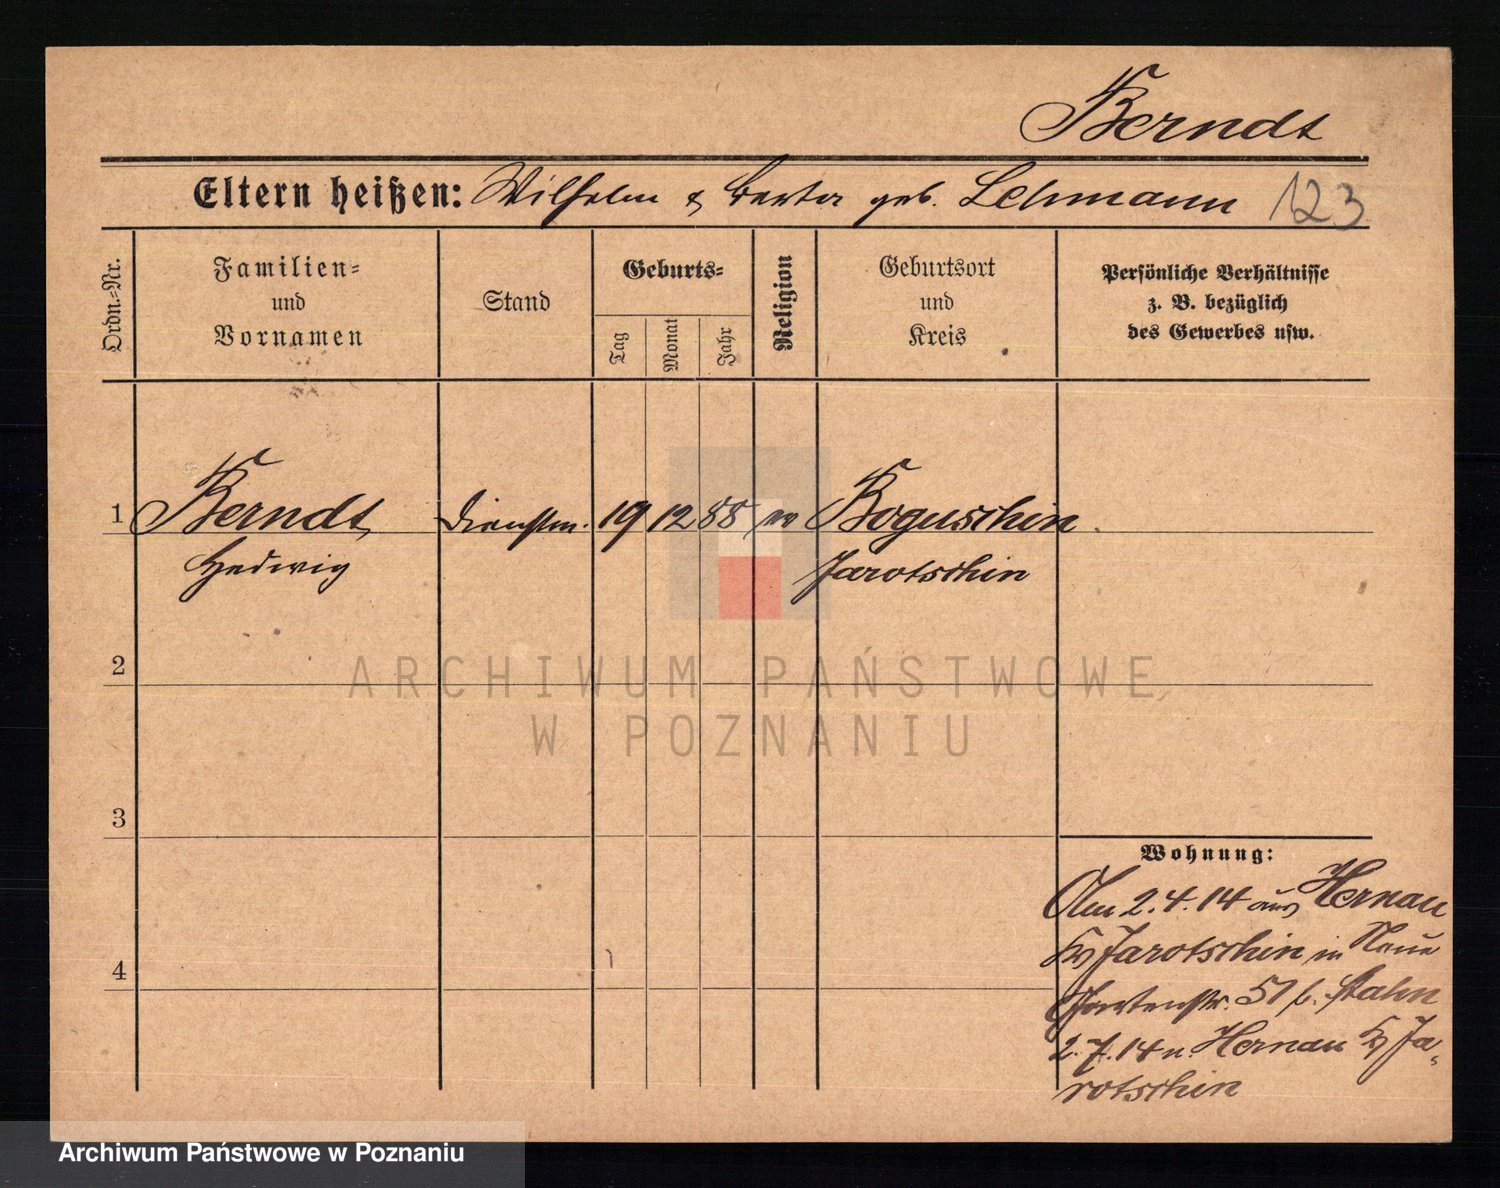 Berndt
Eltern heißen: Wilhelm & Berta geb. Lehmann 123
Ordn.-Nr.
Familien-
und
Vornamen
Stand
Geburts-
Tag
Monat
Jahr
Religion
Geburtsort
und
Kreis
Persönliche Verhältnisse
z. B. bezüglich
des Gewerbes usw.
1 Berndt, Dienstm. 19 12 88 ev Boguschin
Hedwig Jarotschin
2
ARCHIWUM PAŃSTWOWE
W POZNANIU
3
Wohnung:
Am 2.4.14 aus Hernau
Kr Jarotschin in Neue
4
Gartenstr. 51 b. Stahn
2.7.14 n. Hernau Kr Ja-
rotschin
Archiwum Państwowe w Poznaniu